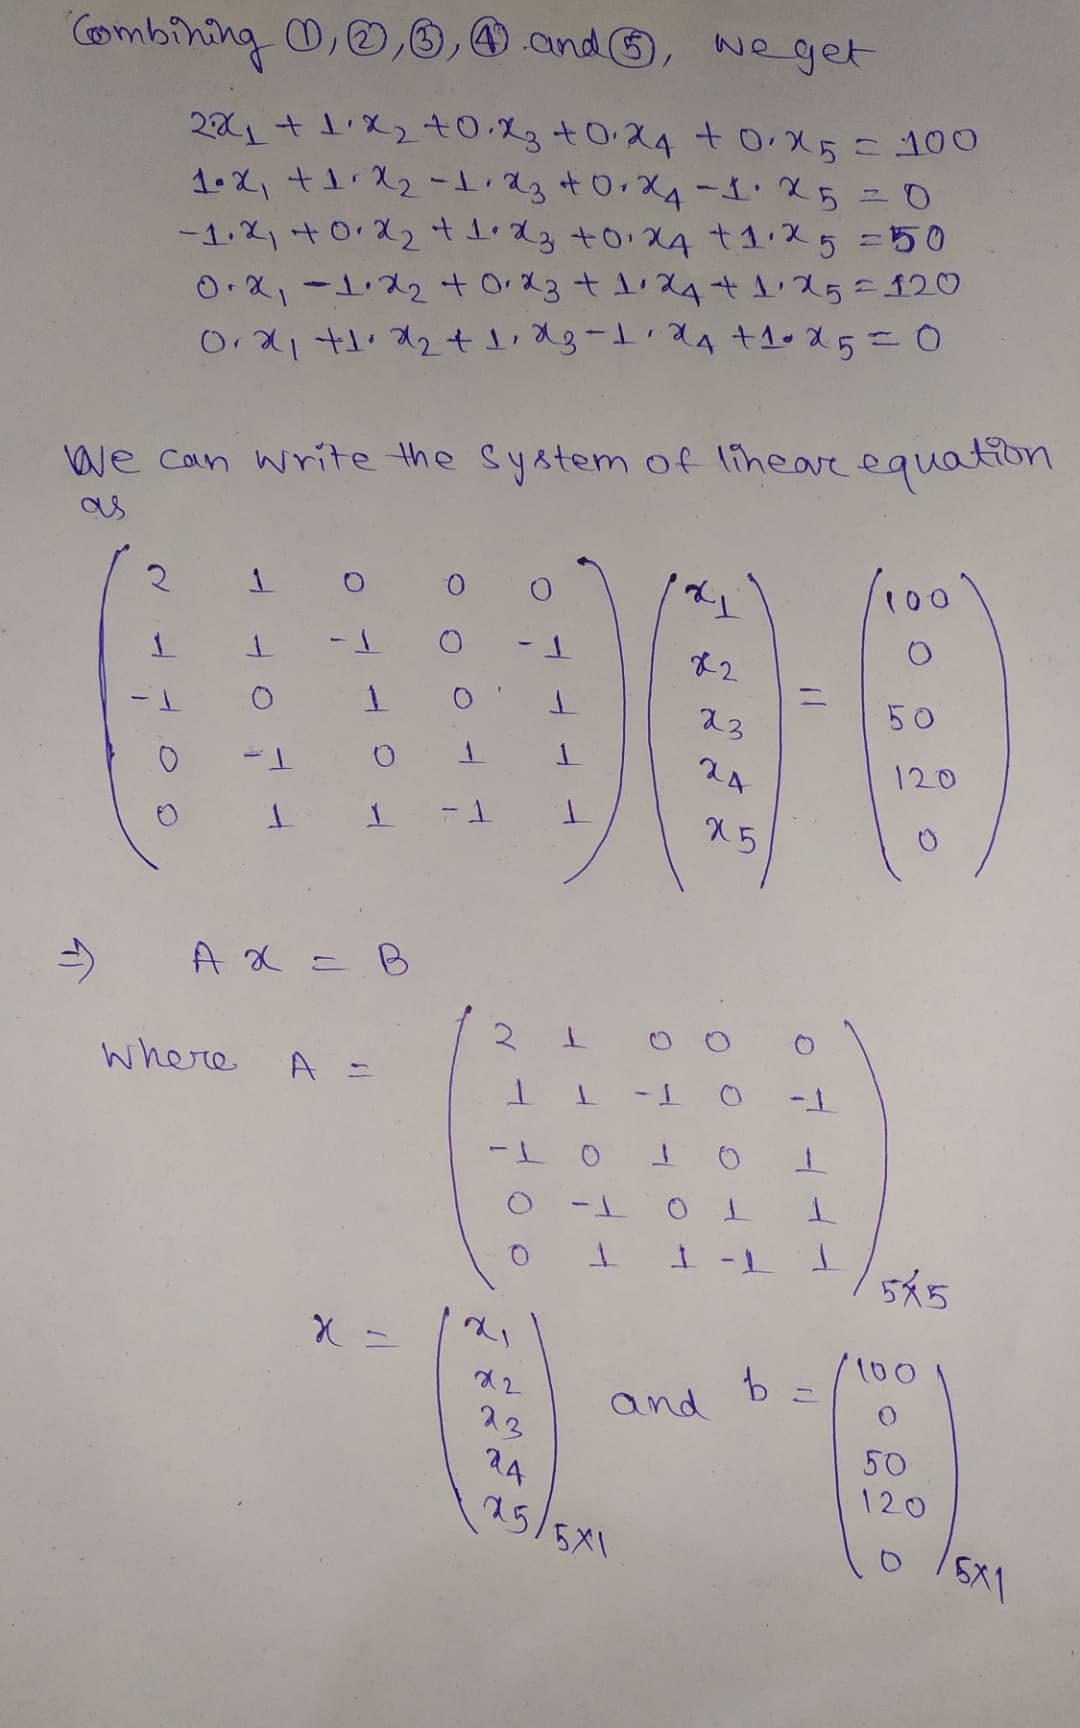 Combining ①, ②, ③, ④ and ⑤, we get
2x₁ + 1·x₂ + 0·x₃ + 0·x₄ + 0·x₅ = 100
1·x₁ + 1·x₂ - 1·x₃ + 0·x₄ - 1·x₅ = 0
-1·x₁ + 0·x₂ + 1·x₃ + 0·x₄ + 1·x₅ = 50
0·x₁ - 1·x₂ + 0·x₃ + 1·x₄ + 1·x₅ = 120
0·x₁ + 1·x₂ + 1·x₃ - 1·x₄ + 1·x₅ = 0
We can write the system of linear equation
as
2 1 0 0 0 x₁ 100
1 1 -1 0 -1 x₂ 0
-1 0 1 0 1 x₃ = 50
0 -1 0 1 1 x₄ 120
0 1 1 -1 1 x₅ 0
⇒ A x = B
where A =
2 1 0 0 0
1 1 -1 0 -1
-1 0 1 0 1
0 -1 0 1 1
0 1 1 -1 1
5×5
x =
x₁
x₂
x₃
x₄
x₅
5×1
and b =
100
0
50
120
0
5×1